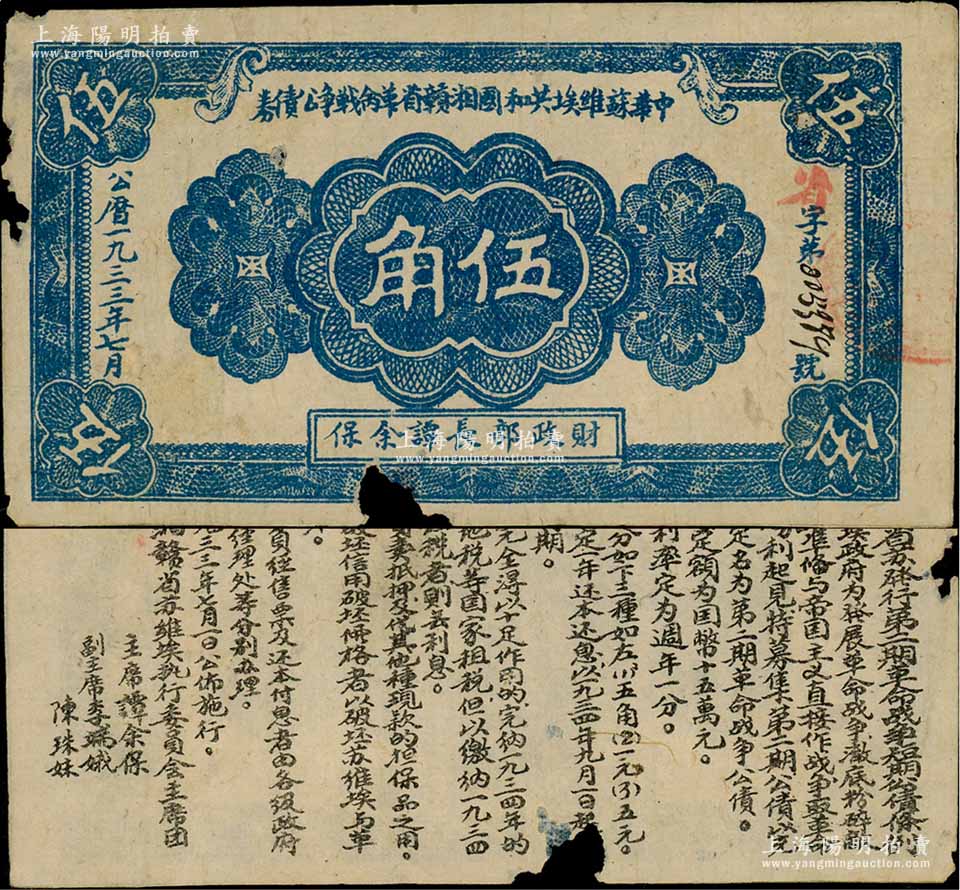 上海陽明拍賣
www.yangmingauction.com
中華蘇維埃共和國湘贛省革命战争公債券
伍
伍
伍
伍
公曆一九三三年七月
伍角
省字第
號
財政部長譚余保
上海陽明拍賣
www.yangmingauction.com
省苏發行第二期革命战争短期公債條例
埃政府为發展革命战争澈底粉碎敵
準俻与帝国主义直接作战争取革命
利起見特募集第二期公債以充
定名为第二期革命战争公債。
定額为国幣十五萬元。
利率定为週年一分。
分如下三種如左(1)五角(2)一元(3)五元。
定一年还本还息以一九三四年九月一日起
期。
完全得以十足作用的完纳一九三四年的
他税等国家租税但以繳纳一九三四
税者則无利息。
賣抵押及代其他種現款的担保品之用。
破坯信用破坯價格者以破坯苏维埃与革
負經售票及还本付息者由各级政府
經理处等分别办理。
三三年七月一日公佈施行。
湘赣省苏维埃执行委員会主席团
主席譚余保
副主席李瑞娥
陳珠妹
上海陽明拍賣
www.yangmingauction.com